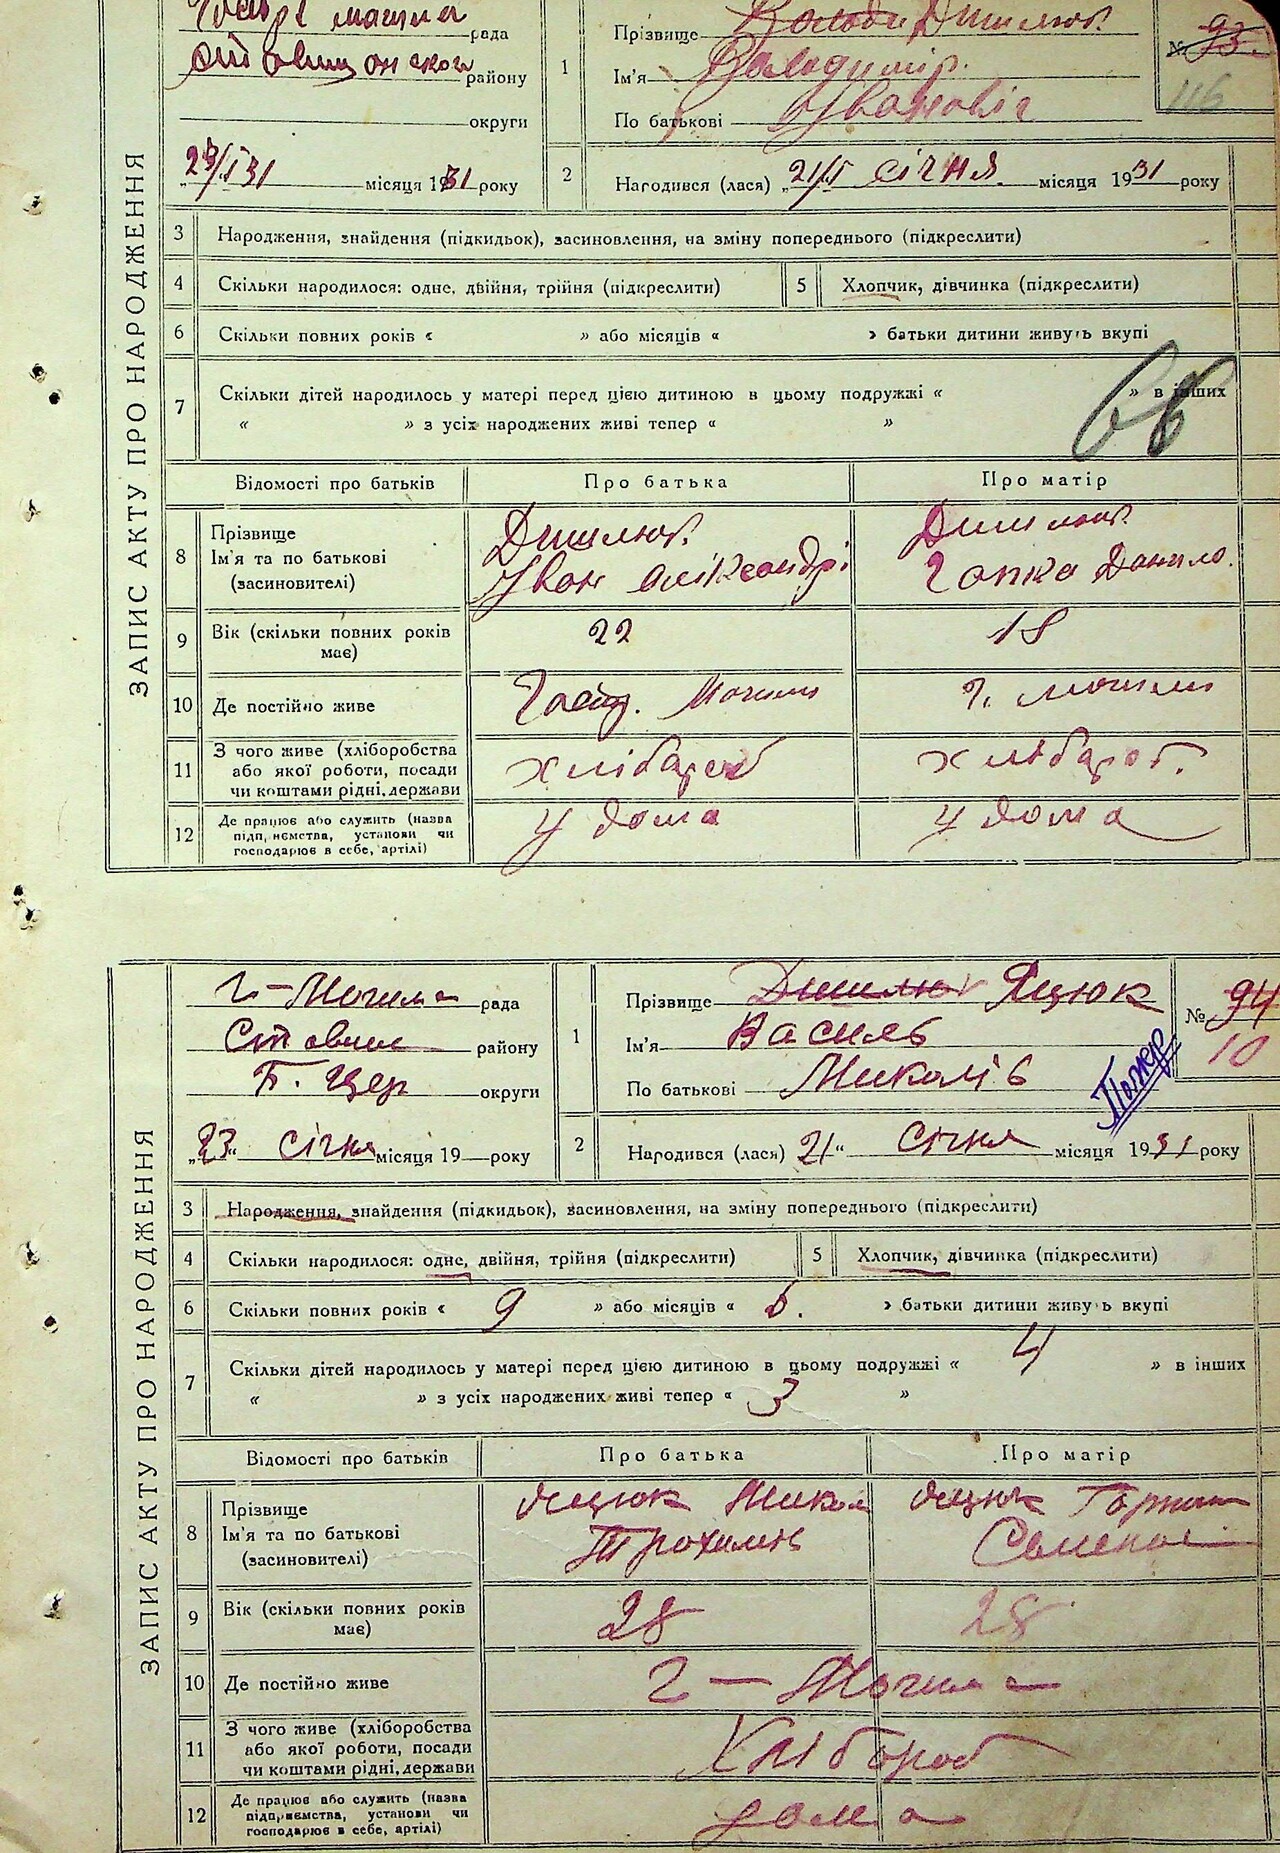 ЗАПИС АКТУ ПРО НАРОДЖЕННЯ
рада
району
округи
23/І 31 місяця 1931 року
1
Прізвище Дишлюк
Ім'я Володимір.
По батькові Іванович
№ 93.
116
2
Народився (лася) „21/І січня місяця 1931 року
3 Народження, знайдення (підкидьок), засиновлення, на зміну попереднього (підкреслити)
4 Скільки народилося: одне, двійня, трійня (підкреслити)
5 Хлопчик, дівчинка (підкреслити)
6 Скільки повних років « » або місяців « » батьки дитини живуть вкупі
7 Скільки дітей народилось у матері перед цією дитиною в цьому подружжі « » в інших
« » з усіх народжених живі тепер « »
Відомості про батьків Про батька Про матір
8 Прізвище
Ім'я та по батькові
(засиновителі)
Дишлюк.
Іван
Дишлюк.
Гапка Данило.
9 Вік (скільки повних років має) 22 18
10 Де постійно живе Могили г. могили
11 З чого живе (хліборобства
або якої роботи, посади
чи коштами рідні, держави
хлібароб хлібароб.
12 Де працює або служить (назва
підприємства, установи чи
господарює в себе, артілі)
у дома у дома
ЗАПИС АКТУ ПРО НАРОДЖЕННЯ
Г-Могила рада
Ставище району
Б. Цер округи
„23“ січня місяця 19 року
1
Прізвище Дишлюк Яцюк
Ім'я Василь
По батькові Миколів
№ 94
10
2
Народився (лася) 21“ січня місяця 1931 року
3 Народження, знайдення (підкидьок), засиновлення, на зміну попереднього (підкреслити)
4 Скільки народилося: одне, двійня, трійня (підкреслити)
5 Хлопчик, дівчинка (підкреслити)
6 Скільки повних років « 9 » або місяців « 6. » батьки дитини живуть вкупі
7 Скільки дітей народилось у матері перед цією дитиною в цьому подружжі « 4 » в інших
« » з усіх народжених живі тепер « 3 »
Відомості про батьків Про батька Про матір
8 Прізвище
Ім'я та по батькові
(засиновителі)
Яцюк Микол
Трохимів
Яцюк
9 Вік (скільки повних років має) 28 28
10 Де постійно живе Г — Могила
11 З чого живе (хліборобства
або якої роботи, посади
чи коштами рідні, держави
Хлібороб
12 Де працює або служить (назва
підприємства, установи чи
господарює в себе, артілі)
дома